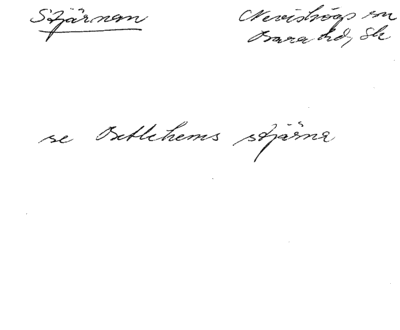 Stjärnan
Nevishögs sn
Bara hd, Sk
se Betlehems stjärna